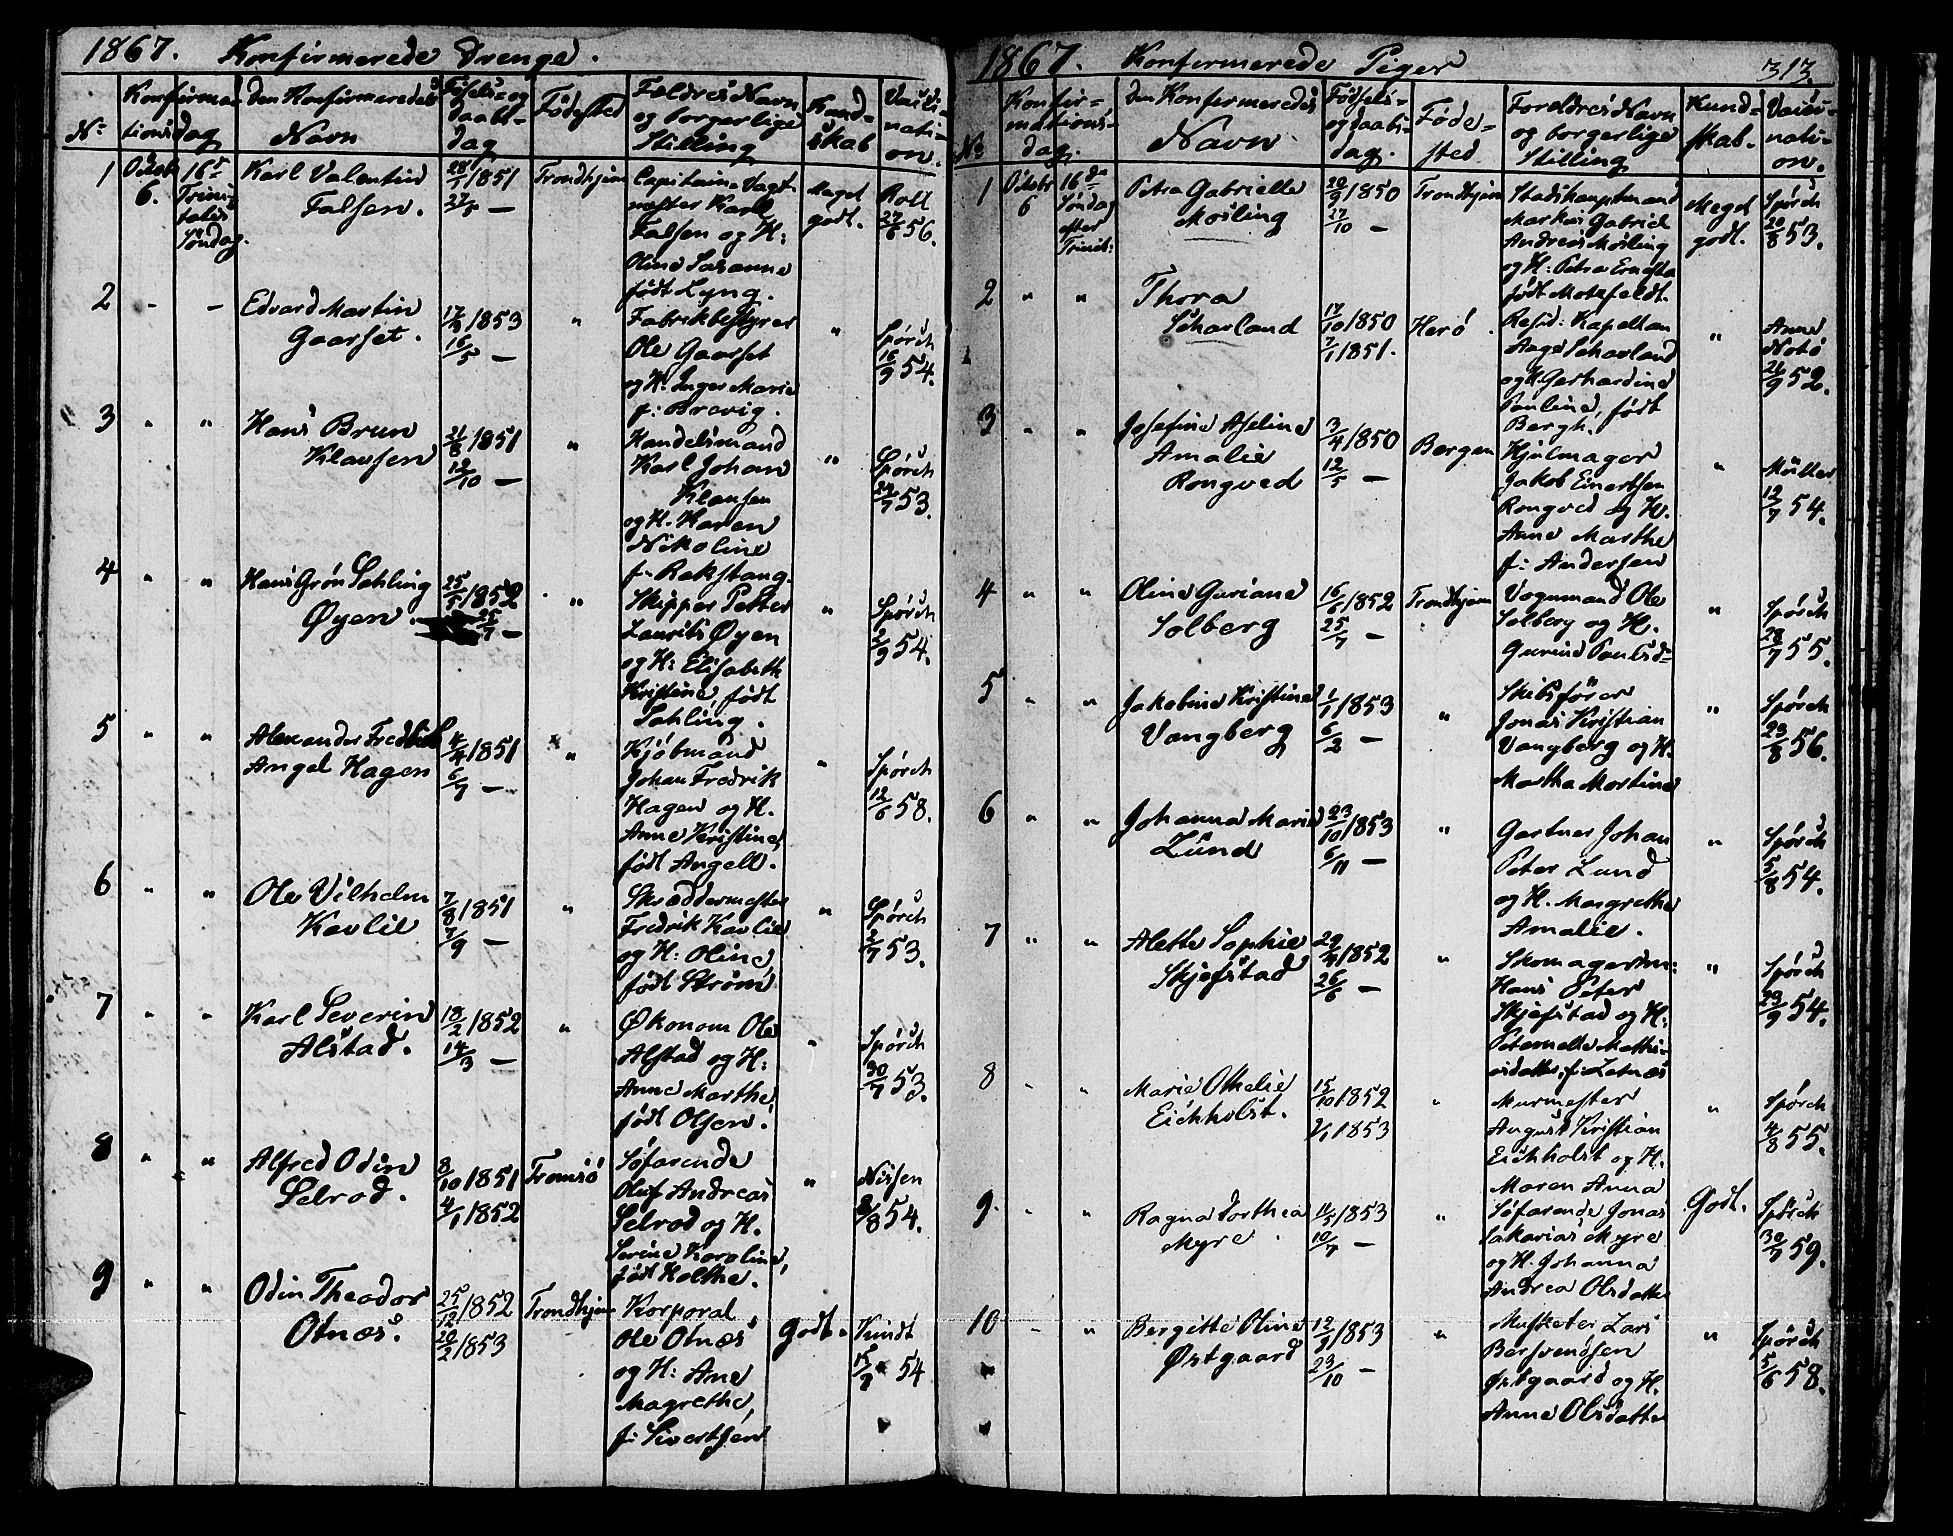 1867. Konfirmerede Drenge.
No
Konfirma-
tionsdag
den Konfirmeredes
Navn
Fødsels- og
daabs-
dag
Fødested
Foldres Navn
og borgerlige
Stilling
Kund-
skab
Vacci-
nati-
on.
1
Oktob
6.
16de
Trini-
tatis
Søndag.
Karl Valentin
Falsen.
28/1 1851
27/5 —
Trondhjem
Capitaine Vagt-
mester Karl
Falsen og H:
Oline Susanne
født Lyng.
Meget
godt.
Roll
27/6 56.
2
- -
Edvard Martin
Gaarset.
17/3 1853
16/5 —
"
Fabrikbestyrer
Ole Gaarset
og H. Inger Marie
f: Bravig.
"
Spørch
16/9 54.
3
" "
Hans Brun
Klausen
21/8 1851
12/10 —
"
Handelsmand
Karl Johan
Klausen
og H. Karen
Nikoline
f: Rakstang.
"
Spørch
24/7 53.
4
" "
Hans Grøn Sehling
Øyen.
25/5 1852
25/7 —
"
Skipper Petter
Laurits Øyen
og H: Elisabeth
Kristine, født
Sehling.
"
Spørch
2/9 54.
5
" "
Alexander Fredrik
Angel Hagen
4/4 1851
6/7 —
"
Kjøbmand
Johan Fredrik
Hagen og H.
Anne Kristine,
født Angell.
"
Spørch
12/6 58.
6
" "
Ole Vilhelm
Kavlie
7/8 1851
7/9 —
"
Skræddermester
Fredrik Kavlie
og H: Oline,
født Strøm
"
Spørch
2/7 53.
7
" "
Karl Severin
Alstad.
18/2 1852
14/3 —
"
Økonom Ole
Alstad og H:
Anne Marthe,
født Olsen.
"
Spørch
30/7 53.
8
" "
Alfred Odin
Selrod.
8/10 1851
4/1 1852
Tromsø
Søfarende
Oluf Andreas
Selrod og H.
Serine Karoline,
født Holthe.
"
Nissen
8/8 54.
9
" "
Odin Theodor
Otnæs.
25/12 1852
20/2 1853
Trondhjem
Korporal
Ole Otnæs
og H: Ane
Magrethe,
f: Sivertsen
godt.
Kundt
15/7 54
1867. Konfirmerede Piger
313
No
Konfir-
mations-
dag.
den Konfirmeredes
Navn
Fødsels-
og daabs-
dag.
Føde-
sted
Forældres Navn
og borgerlige
Stilling
Kund-
skab.
Vacci-
nati-
on.
1
Oktobr
6
16de
Søndag
efter
Trinit:
Petra Gabrielle
Møsling
20/9 1850
27/10 —
Trondhjem
Stadshauptmand
Markus Gabriel
Andreas Møsling
og H: Petra Ernesta
født Motzfeldt.
Meget
godt.
Spørch
20/8 53.
2
" "
Thora
Scharland
17/10 1850
7/1 1851.
Herø.
Resid: Kapellan
Aage Scharland
og H Gerhardine
Pauline, født
Bergh.
"
Anne
Notø
21/9 52.
3
" "
Josefine Aseline
Amalie
Rongved
3/4 1850
12/5 —
Bergen
Hjulmager
Jakob Einertsen
Rongved og H.
Anne Marthe
f: Andersen
"
Müller
12/7 54.
4
" "
Oline Guriane
Solberg
16/6 1852
25/7 —
Trondhjem
Vognmand Ole
Solberg og H.
Gurine Paulsd=
"
Spørch
28/7 55.
5
" "
Jakobine Kristine
Vangberg
1/1 1853
6/2 —
"
Skibsfører
Jonas Kristian
Vangberg og H.
Martha Martine
"
Spørch
23/8 56.
6
" "
Johanna Marie
Lund
23/10 1853
6/11 —
"
Gartner Johan
Peter Lund
og H. Margrethe
Amalie.
"
Spørch
5/8 54.
7
" "
Alette Sophie
Skjefstad
29/4 1852
26/6 —
"
Skomagerm:
Hans Peter
Skjefstad og H:
Peternelle Mathi-
asdatter, f: Letnæs
"
Spørch
23/9 54.
8
" "
Marie Othelie
Eichholst.
15/10 1852
2/1 1853
"
Murmester
August Kristian
Eichholst og H.
Maren Anna
"
Spørch
4/8 55.
9.
" "
Ragna Dorthea
Myre.
11/5 1853
10/7 —
"
Søfarende Jonas
Sakarias Myre
og H. Johanna
Andrea Olsdatter
Godt.
Spørch
30/7 59.
10
- "
Bergitte Oline
Østgaard
12/9 1853
23/10 —
"
Musketer Lars
Bersvendsen
Østgaard og H.
Anne Olsdatter
"
Spørch
5/6 58.